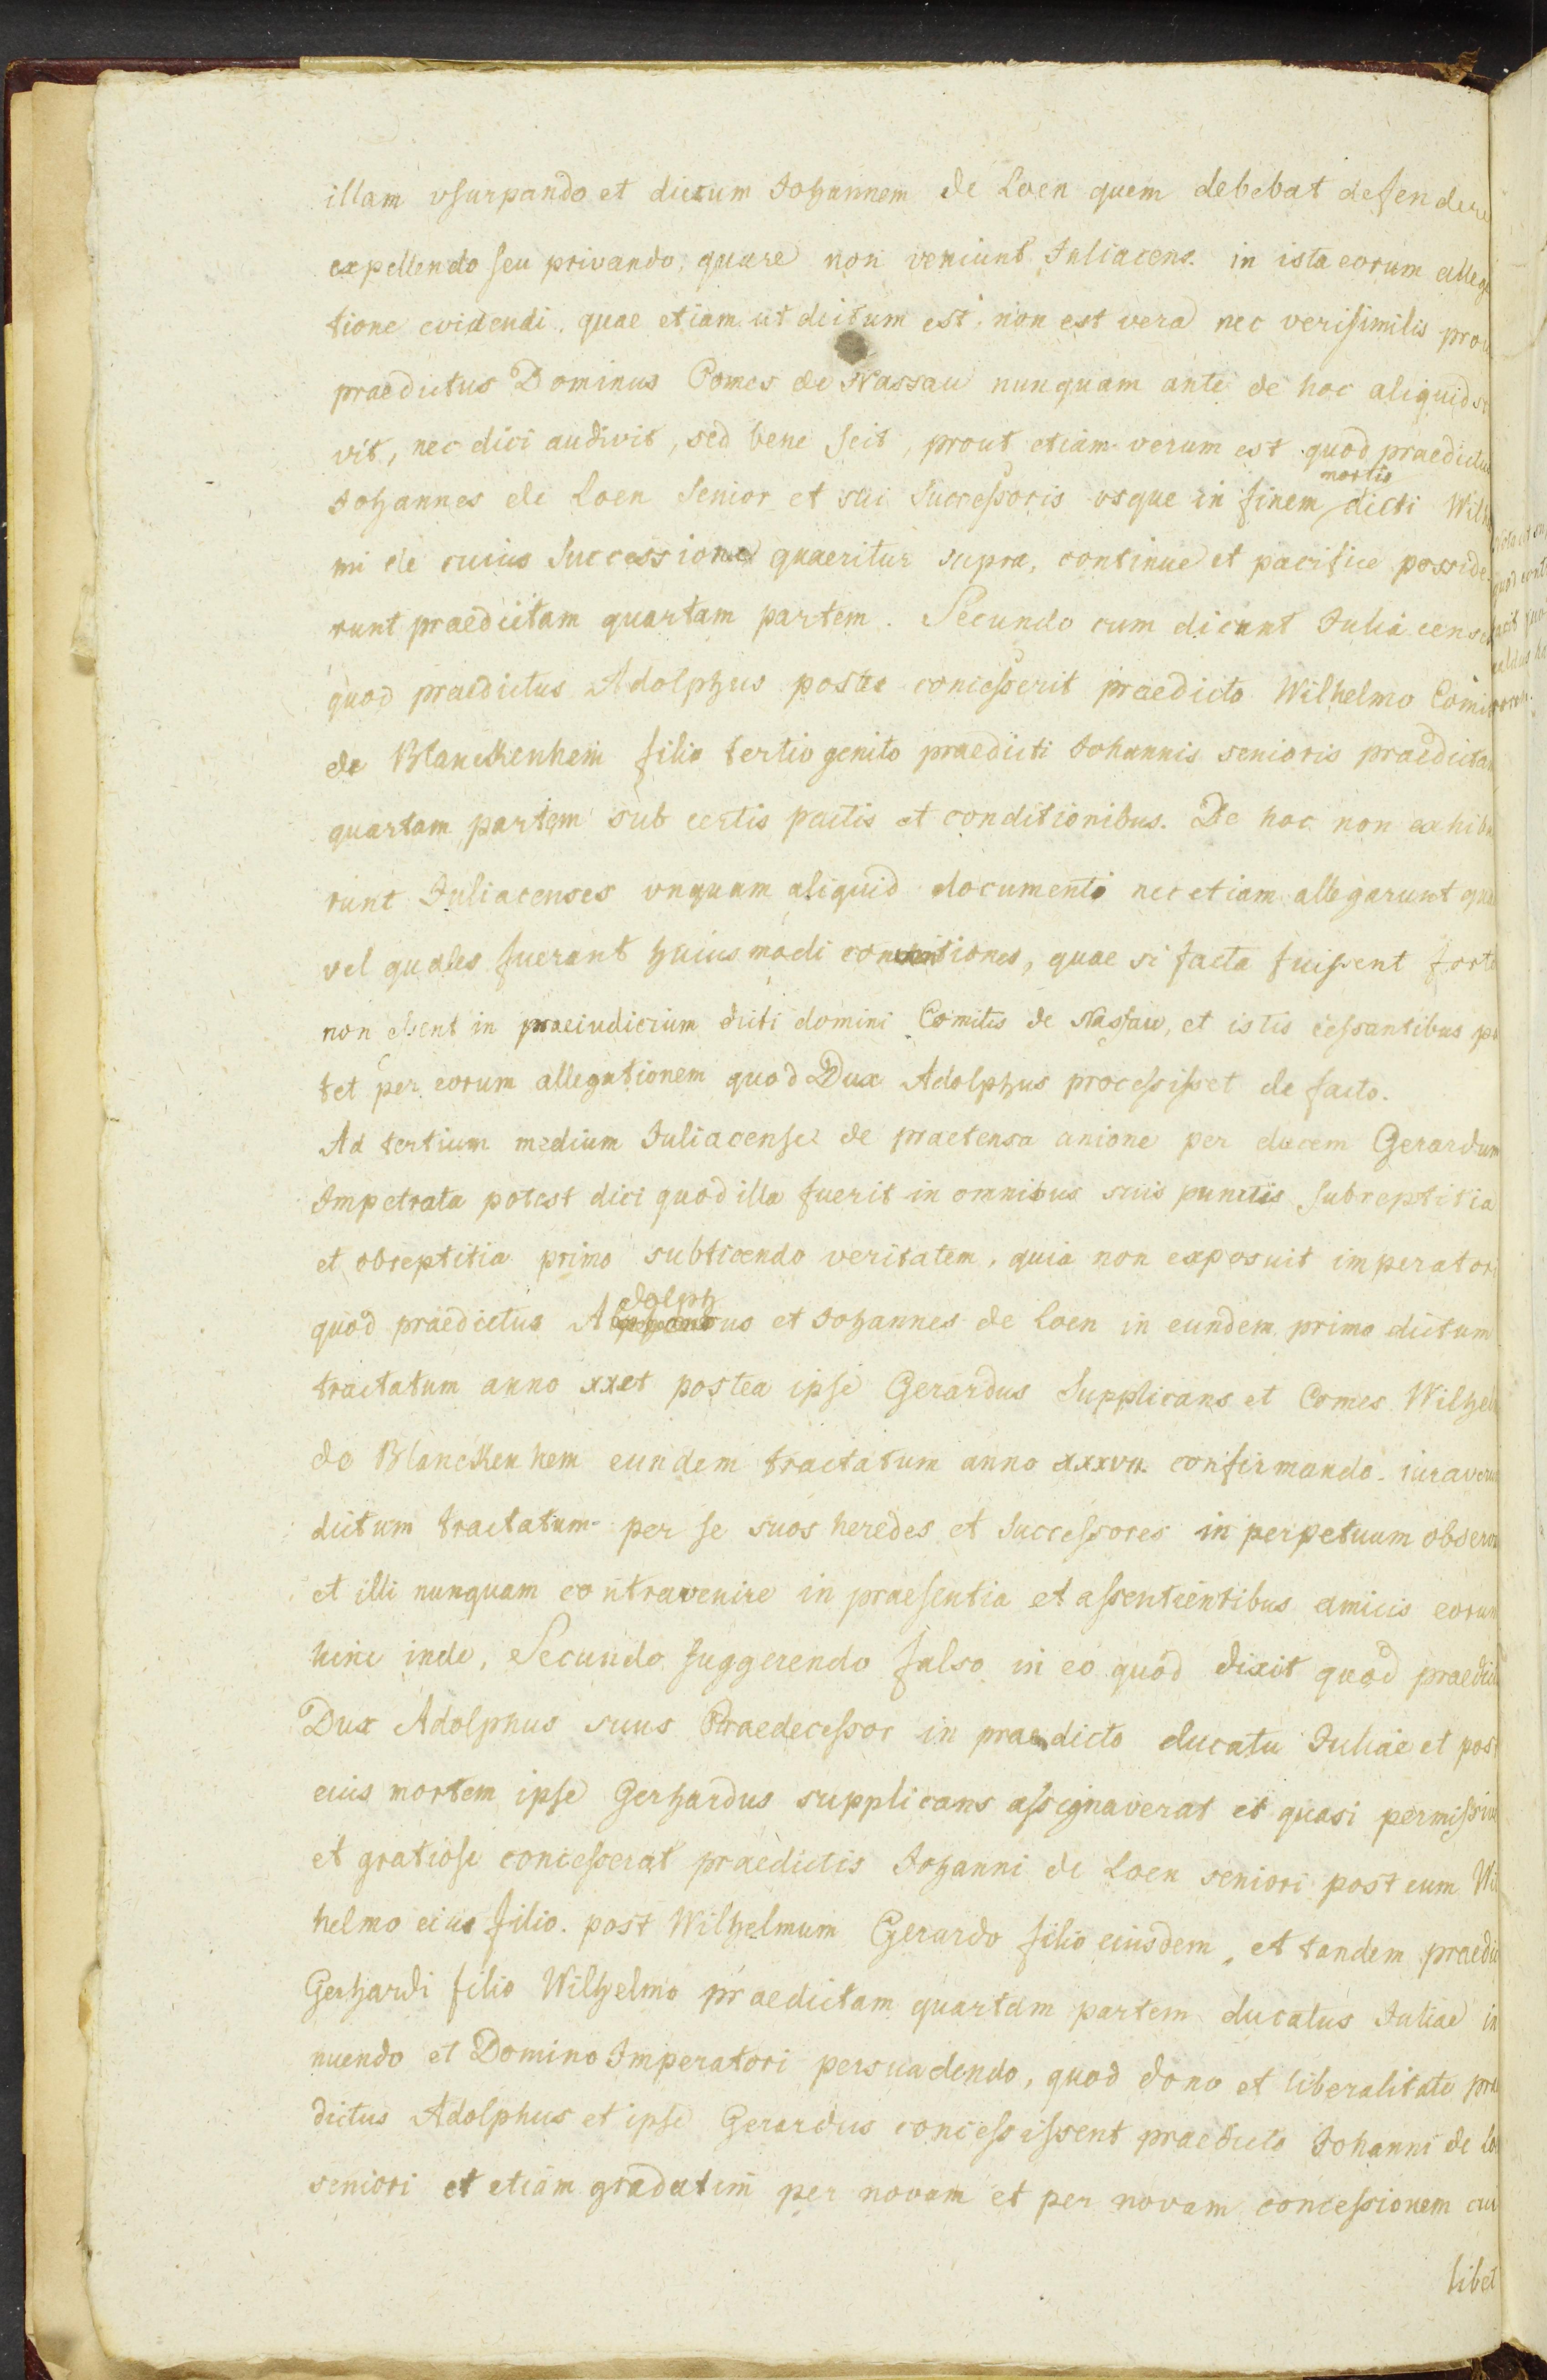 illam vsurpando et dictum Johannem de Loen quem debebat defendere
expellendo seu privando, quare non veniunt Juliacens. in ista eorum allega
tione evidendi, quae etiam ut dictum est, non est vera nec verisimilis prou
praedictus Dominus Comes de Nassau nunquam ante de hoc aliquid
vit, nec dici audivit, sed bene scit, prout etiam verum est quod praedictus
mortis
Johannes de Loen Senior et sui Successoris vsque in finem dicti Wilhel
mi de cuius Successione quaeritur supra, continue et pacifice posside
runt praedictam quartam partem. Secundo cum dicunt Juliacenses
quod praedictus Adolphus postea concesserit praedicto Wilhelmo Comit
de Blanckenheim filio tertio genito praedicti Johannis senioris praedictam
quartam partem sub certis pactis et conditionibus. De hoc non exhibu
runt Juliacenses vnquam aliquid documenti nec etiam allegarunt qua
vel quales fuerant huiusmodi conventiones, quae si facta fuissent forte
non essent in praeiudicium dicti domini Comitis de Nassau, et istis cessantibus pa
tet per eorum allegationem quod Dux Adolphus processisset de facto.
Ad tertium medium Juliacense de praetensa unione per ducem Gerardum
Impetrata potest dici quod illa fuerit in omnibus suis punctis subreptitia
et obreptitia primo subticendo veritatem, quia non exposuit imperatori
dolph
quod praedictus A us et Johannes de Loen in eundem primo dictum
tractatum anno xx et postea ipse Gerardus Supplicans et Comes Wilhel
de Blanckenhem eundem tractatum anno xxxvii. confirmando iuraverun
dictum tractatum per se suos heredes et Successores in perpetuum observa
et illi nunquam contravenire in praesentia et assentientibus amicis eorum
hinc inde, Secundo suggerendo falso in eo quod dixit quod praedict
Dux Adolphus suus Praedecessor in praedicto ducatu Juliae et post
eius mortem ipse Gerhardus supplicans assignaverat et quasi permissive
et gratiose concesserat praedictis Johanni de Loen seniori post eum Wil
helmo eius filio. post Wilhelmum Gerardo filio eiusdem, et tandem praedic
Gerhardi filio Wilhelmo praedictam quartam partem ducatus Juliae in
nuendo et Domino Imperatori persuadendo, quod dono et liberalitate prae
dictus Adolphus et ipse Gerardus concessissent praedicto Johanni de Lo
seniori et etiam gradatim per novam et per novam concessionem cui
libet